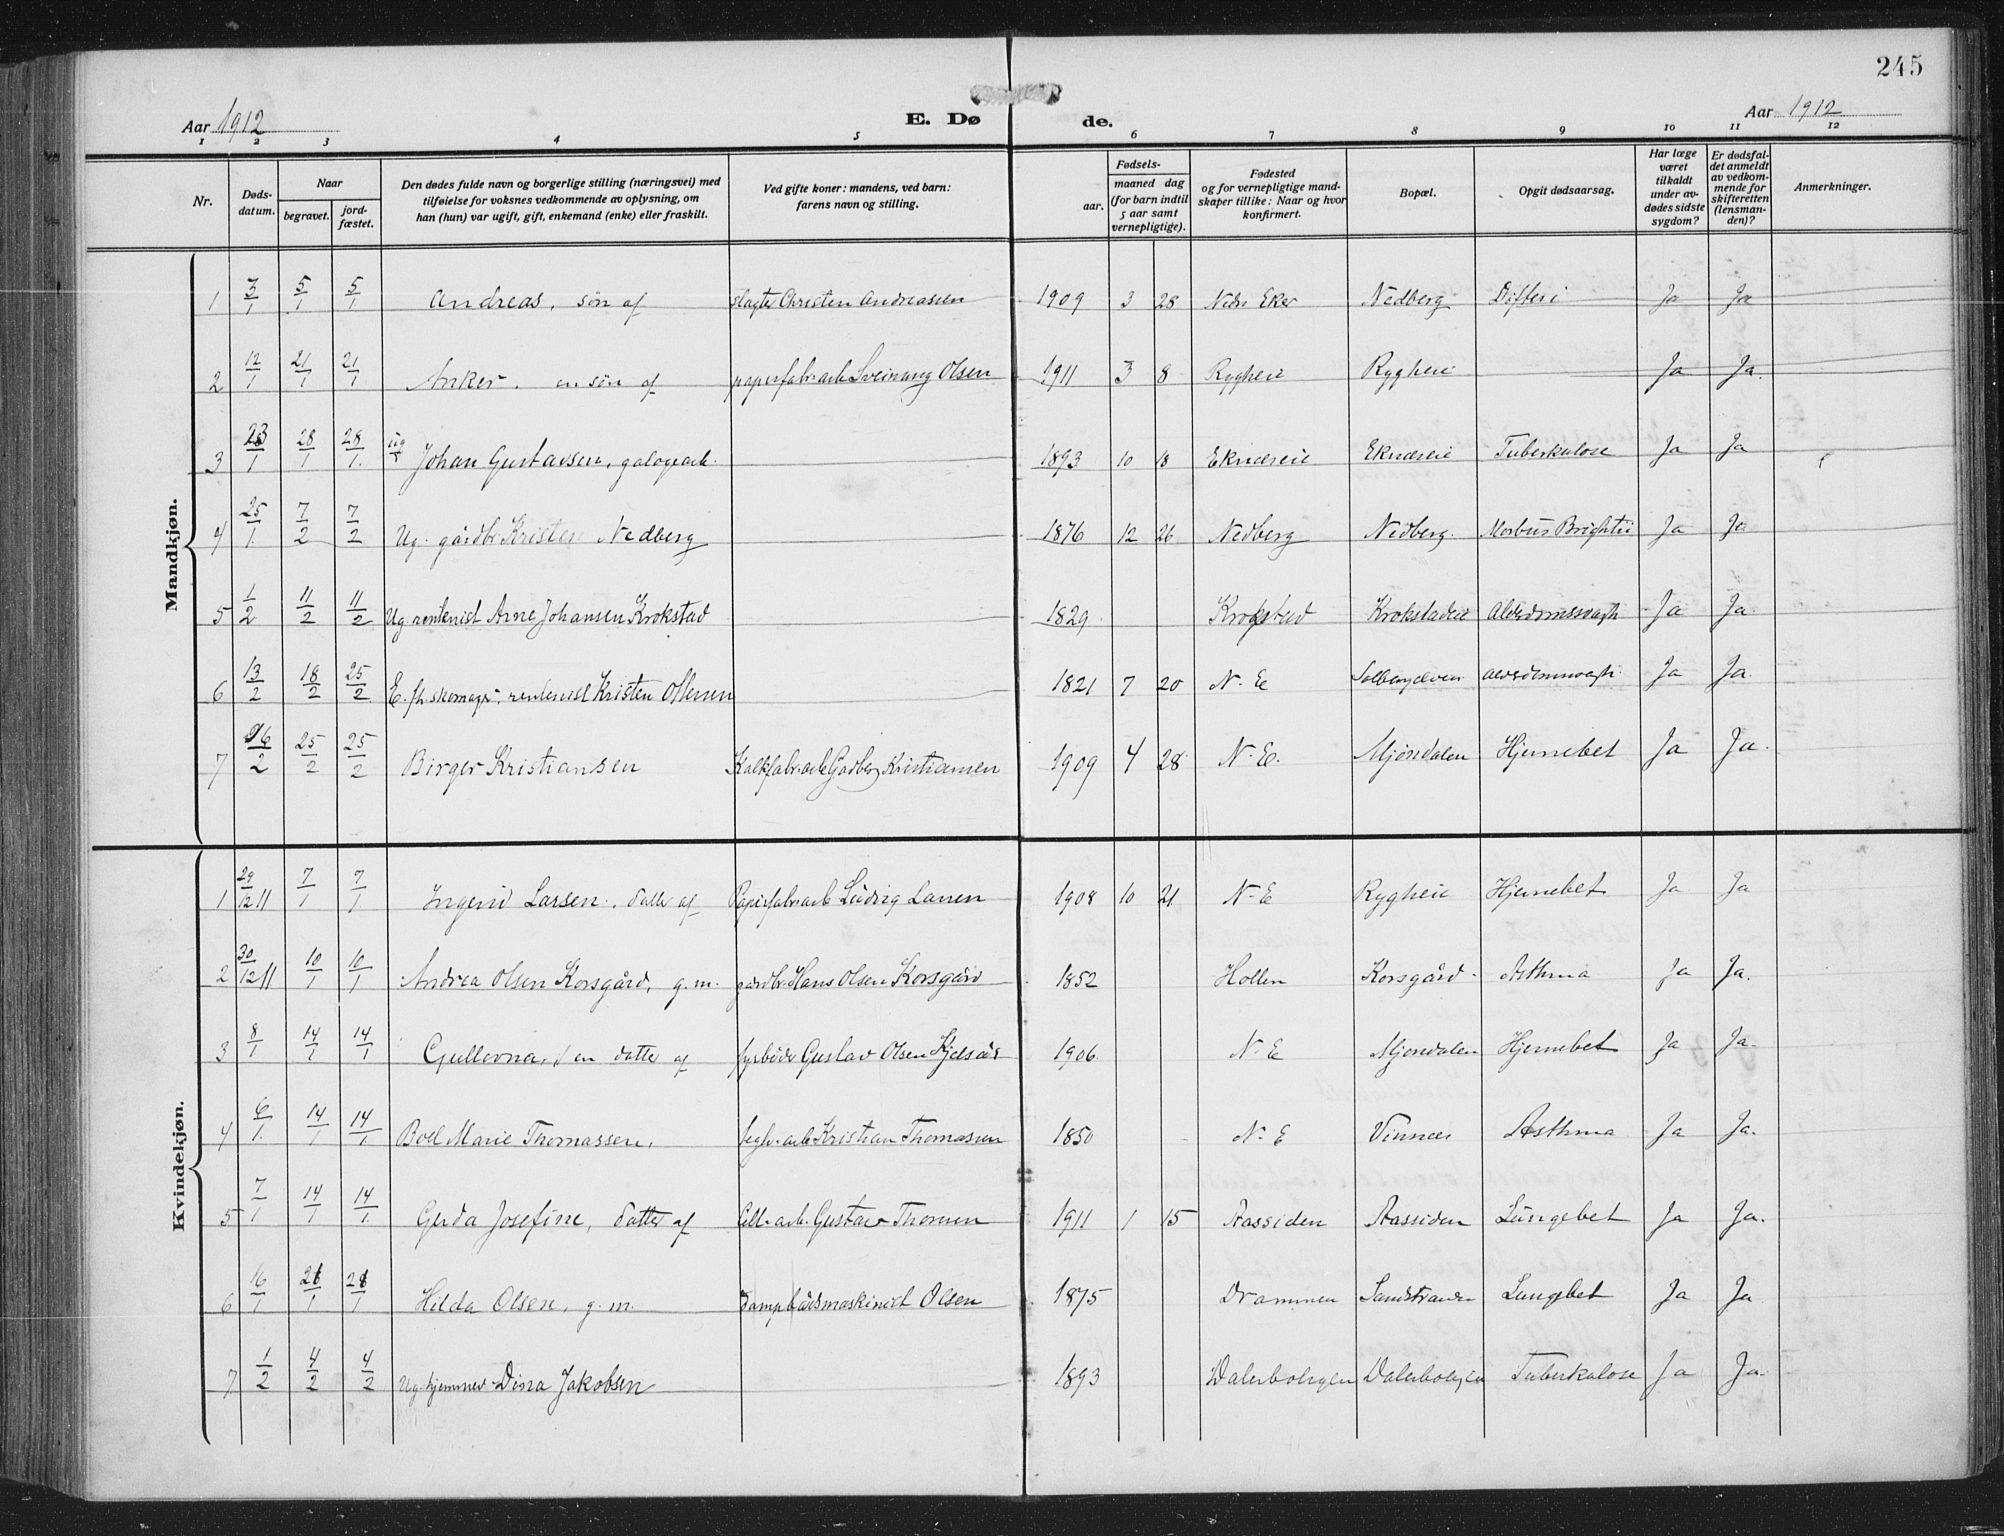 245
Aar 1912
E. Dø de.
Aar 1912
1 2 3 4 5 6 7 8 9 10 11 12
Nr.
Døds-
datum.
Naar
begravet.
jord-
fæstet.
Den dødes fulde navn og borgerlige stilling (næringsvei) med
tilføielse for voksnes vedkommende av oplysning, om
han (hun) var ugift, gift, enkemand (enke) eller fraskilt.
Ved gifte koner: mandens, ved barn:
farens navn og stilling.
Fødsels-
aar.
maaned dag
(for barn indtil
5 aar samt
vernepligtige).
Fødested
og for vernepligtige mand-
skaper tillike: Naar og hvor
konfirmert.
Bopæl.
Opgit dødsaarsag.
Har læge
været
tilkaldt
under av-
dødes sidste
sygdom?
Er dødsfal-
det anmeldt
av vedkom-
mende for
skifteretten
(lensman-
den)?
Anmerkninger.
Mandkjøn.
1 3/1 5/1 5/1 Andreas, søn af slagter Christen Andreassen 1909 3 28 Nedr Eker Nedberg Difteri Ja Ja
2 12/1 21/1 21/1 Anker, en søn af papirfabrarb Sveinung Olsen 1911 3 8 Rygheie Rygheie Ja Ja.
3 23/1 28/1 28/1. ug Johan Gustavsen, galogearb. 1893 10 18 Eknæseie Eknæseie Tuberkulose Ja Ja
4 25/1. 7/2 7/2 Ug. gårdbr Kristen Nedberg 1876 12 26 Nedberg Nedberg. Morbus Brightii Ja Ja
5 1/2 11/2 11/2 Ug. rentenist Arne Johansen Krokstad 1829 Krokstad Krokstadeie Alderdomssvagh Ja Ja.
6 13/2 18/2 25/2 E. fh. skomager, rentenist Kristen 1821 7 20 N. E Solbergelven Alderdomssvagh. Ja Ja.
7 16/2 25/2 25/2 Birger Kristiansen Kalkfabrarb Kristiansen 1909 4 28. N. E. Mjøndalen Hjernebet Ja Ja.
Kvindekjøn.
1 29/12 11 7/1 7/1 Ingerid Larsen, datter af Papirfabrarb Ludvig Larsen 1908 10 21 N. E Rygheie Hjernebet Ja Ja
2 30/12 11 10/1 10/1 Andrea Olsen Korsgård, g. m. gårdbr. Hans Olsen Korsgård 1852 Hollen Korsgård. Asthma Ja Ja.
3 8/1 14/1 14/1 Gullovna, en datter af fyrbøder Gustav Olsen Kjelsås 1906 N. E Mjøndalen Hjernebet Ja Ja.
4 6/1. 14/1 14/1 Boel Marie Thomassen, teglv. arb Kristian Thomassen 1850 N. E Vinnes Asthma Ja Ja.
5 7/1 14/1 14/1. Gerda Josefine, datter af Cell. arb. Gustav Thorsen 1911 1 15 Aassiden Aassiden Lungebet Ja Ja.
6 16/1 21/1 21/1 Hilda Olsen, g. m. Dampbådsmaskinist Olsen 1875 Drammen Sandstranden Lungebet Ja Ja
7 1/2 4/2 4/2 Ug. hjemmev. Dina Jakobsen 1893 Dalerboligen Dalerboligen Tuberkulose Ja Ja.